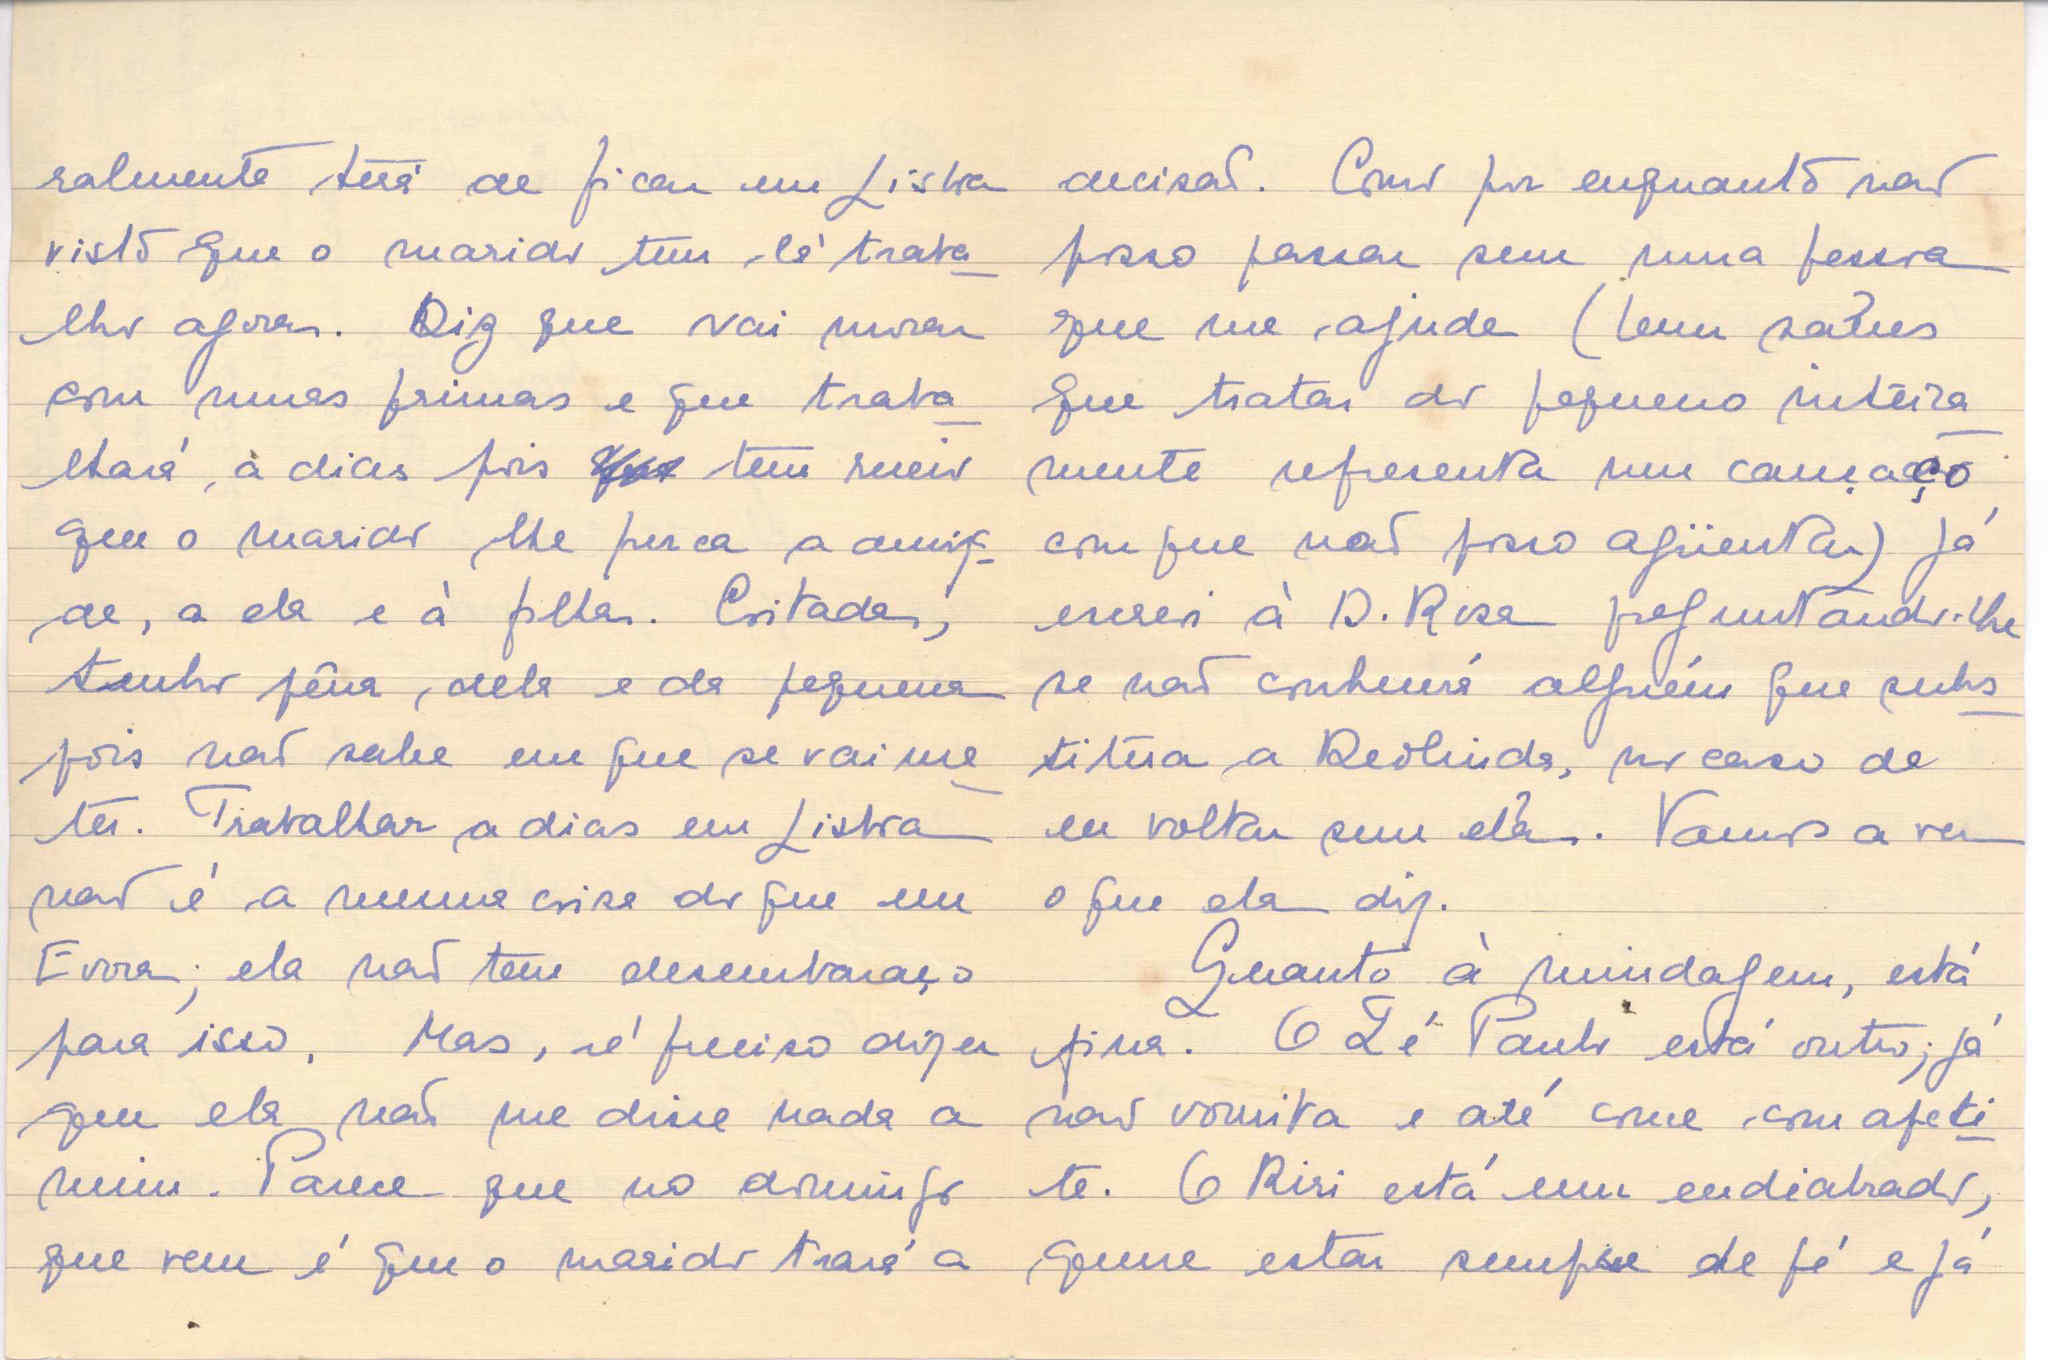 ralmente terá de ficar em Lisboa
visto que o marido tem lá traba-
lho agora. Diz que vai morar
com umas primas e que traba-
lhará a dias pois tem receio
que o marido lhe perca a amiza-
de, a ela e à filha. Coitada,
tenho pêna dela e da pequena
pois não sabe em que se vai me-
ter. Trabalhar a dias em Lisboa
não é a mesma coisa do que em
Evora; ela não tem desembaraço
para isso. Mas, é preciso dizer
que ela não me disse nada a
mim. Parece que no domingo
que vem é que o marido trará a
decisão. Como por enquanto não
posso passar sem uma pessoa
que me ajude (bem sabes
que tratar do pequeno inteira-
mente representa um cansaço
com que não posso agüentar) já
escrevi à D. Rosa preguntando-lhe
se não conhecerá alguém que subs-
titua a Deolinda, no caso de
eu voltar sem ela. Vamos a ver
o que ela diz.
Quanto à miudagem, está
fina. O Zé Paulo está outro; já
não vomita e até come com apeti-
te. O Riri está um endiabrado,
quere estar sempre de pé e já